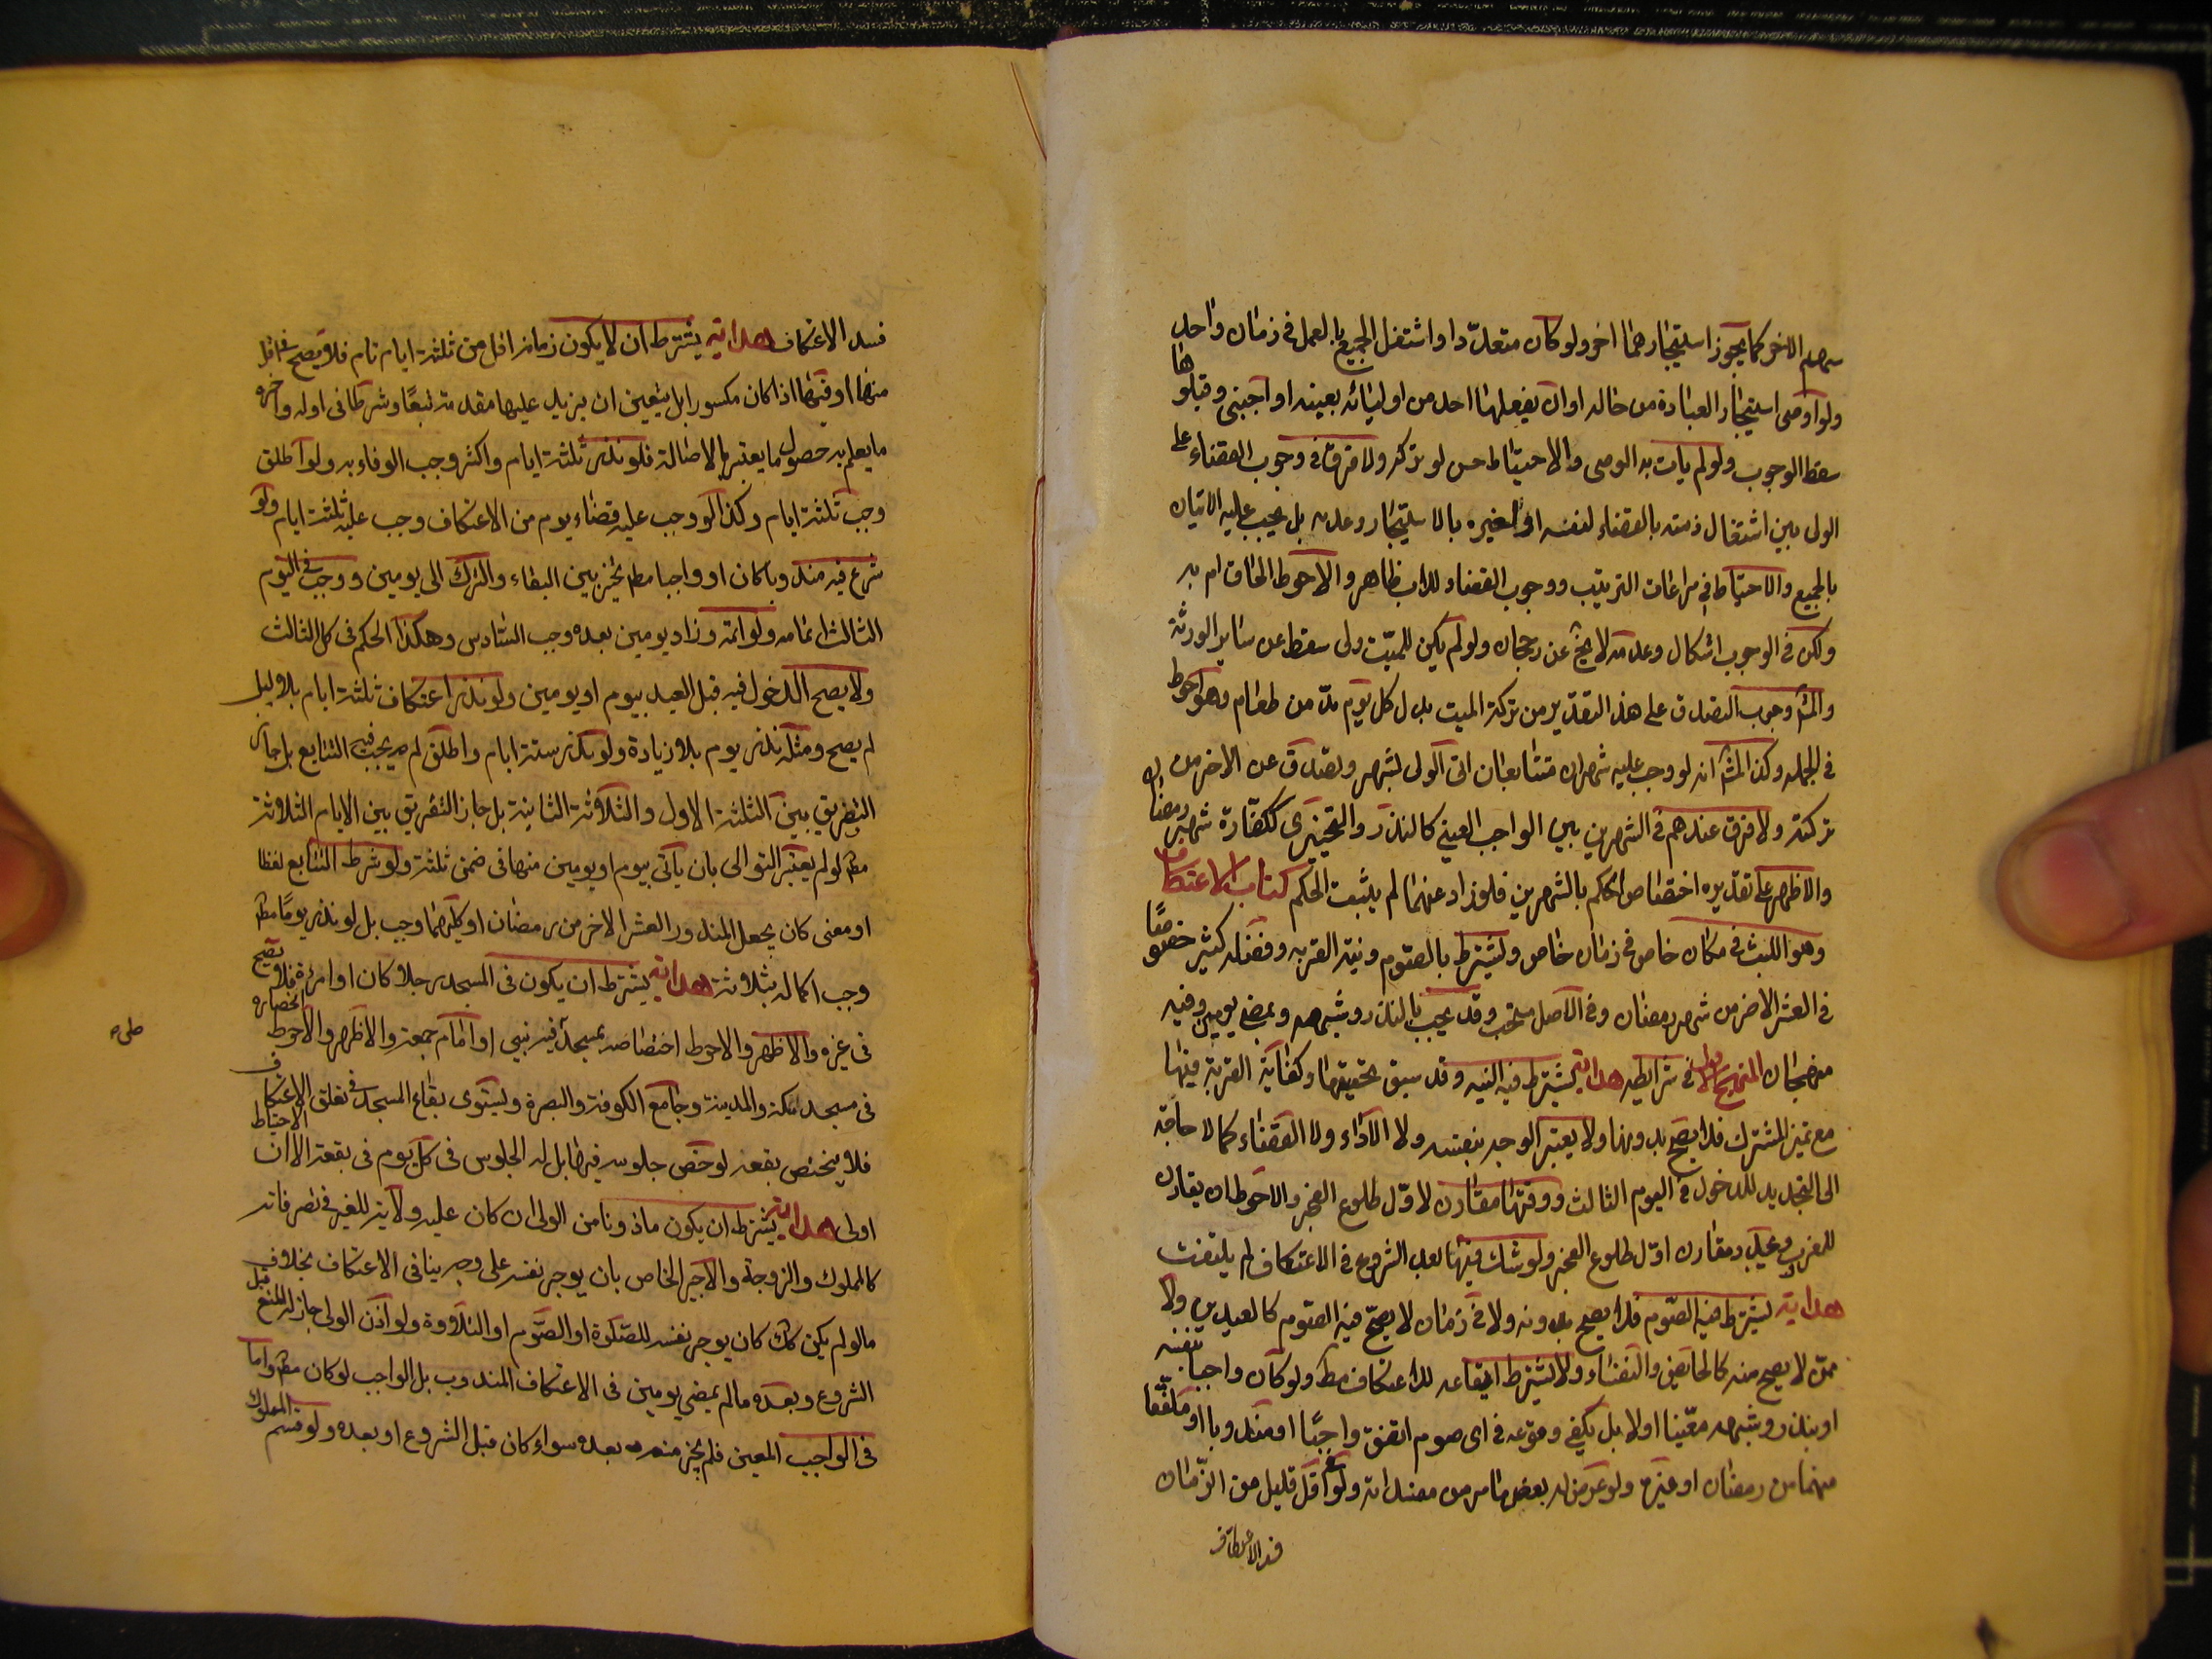 الاخر كما يجوز استيجارهما اخر ولو كان متعددا واشتغل الجميع بالعمل فى زمان واحد
ولو اوصى استيجار العبادة من حاله او ان يفعلها احد من اوليائه بعينه او اجنبى وقبلوها
سقط الوجوب ولو لم يات به الوصى والاحتياط حسن لو تركه ولا فرق فى وجوب القضاء على
الولى بين اشتغال ذمته بالقضاء لنفسه او لغيره بالاستيجار وعدمه بل يجب عليه الاتيان
بالجميع والاحتياط فى مراعات الترتيب ووجوب القضاء للاب ظاهر والاحوط الحاق ام به
ولكن فى الوجوب اشكال وعدمه لا يخ عن رجحان ولو لم يكن للميت ولى سقط عن ساير الورثة
والمش وجوب التصدق على هذا التقدير من تركة الميت بدل كل يوم مد من طعام وهو احوط
فى الجمله وكذا المش انه لو وجب عليه شهران متتابعان اتى الولى بشهر وتصدق عن الاخر من
تركته ولا فرق عندهم فى الشهرين بين الواجب العينى كالنذر والتخييرى ككفارة شهر رمضان
والاظهر على تقديره اختصاص الحكم بالشهرين فلو زاد عنهما لم يثبت الحكم كتاب الاعتكاف
وهو اللبث فى مكان خاص فى زمان خاص ويشترط بالصوم ونية القربه وفضله كثير خصوصا
فى العشر الاخر من شهر رمضان وفى الاصل مستحب وقد يجب بالنذر وشبهه وبمضى يومين وفيه
منهجان المنهج الاول فى شرايطه هداية يشترط فيه النيه وقد سبق تحقيقها وكفاية القربة فيها
مع تميز المشترك فلا يصح بدونها ولا يعتبر الوجه بنفسه ولا الاداء ولا القضاء كما لا حاجة
الى التجديد للدخول فى اليوم الثالث ووقتها مقارن لاول طلوع الفجر والاحوط ان يقارن
للمغرب ويجدد مقارن اول طلوع الفجر ولو شك فيها بعد الشروع فى الاعتكاف لم يلتفت
هداية يشترط فيه الصوم فلا يصح بدونه ولا فى زمان لا يصح فيه الصوم كالعيدين ولا
ممن لا يصح منه كالحائض والنفساء ولا يشترط ايقاعه للاعتكاف مط ولو كان واجبا بنفسه
او بنذر وشبهه معينا اولا بل يكفى وقوعه فى اى صوم اتفق واجبا او مندوبا او ملفقا
منهما من رمضان او غيره ولو عرض له بعض ما مر من مفسداته ولو فى اقل قليل من الزمان
فسد الاعتكاف
فسد الاعتكاف هداية يشترط ان لا يكون زمانه اقل من ثلثة ايام تام فلا يصح فى اقل
منها او فيها اذا كان مكسورا بل يتعين ان يزيد عليها مقدمة تبعا وشرطا فى اوله واخره
ما يعلم به حصول ما يعتبر بالاصالة فلو نذر ثلثة ايام واكثر وجب الوفاء به ولو اطلق
وجب ثلثة ايام وكذا لو وجب عليه قضاء يوم من الاعتكاف وجب عليه ثلثة ايام ولو
شرع فيه مندوبا كان او واجبا مط تخير بين البقاء والترك الى يومين ووجب فى اليوم
الثالث اتمامه ولو اتمه وزاد يومين بعده وجب السادس وهكذا الحكم فى كل الثالث
ولا يصح الدخول فيه قبل العيد بيوم او يومين ولو نذر اعتكاف ثلثة ايام بلا ليل
لم يصح ومثله نذر يوم بلا زيادة ولو نذر ستة ايام واطلق لم يجب فيه التتابع بل جاز
التفريق بين الثلثة الاول والثلاثة الثانية بل جاز التفريق بين الايام الثلاثة
مط لو لم يعتبر التوالى بان يأتى بيوم او يومين منها فى ضمن ثلثة ولو شرط التتابع لفظا
او معنى كان يجعل المنذور العشر الاخر من رمضان او كليهما وجب بل لو نذر يوما مط
وجب اكماله بثلاثة هداية يشترط ان يكون فى المسجد رجلا كان او امرءة فلا يصح
فى غيره والاظهر والاحوط اختصاصه بمسجد فيه نبي او امام جمعة والاظهر والاحوط انحصاره
فى مسجد مكة والمدينة وجامع الكوفة والبصرة ويستوى بقاع المسجد فى تعلق الاعتكاف
فلا يختص بقعة لو خص جلوسه فيها بل له الجلوس فى كل يوم فى بقعة الا ان الاحتياط
اولى هداية يشترط ان يكون ماذونا من الولى ان كان عليه ولاية للغير فى تصرفاته
كالمملوك والزوجة والاجير الخاص بان يوجر نفسه على وجه ينافى الاعتكاف بخلاف
ما لو لم يكن كك كان يوجر نفسه للصلوة او الصوم او التلاوة ولو اذن الولى جاز له المنع قبل
الشروع وبعده ما لم يمضى يومين فى الاعتكاف المندوب بل الواجب لو كان مط واما
فى الواجب المعين فلم يجز منعه بعده سواء كان قبل الشروع او بعده ولو قسم المملوك